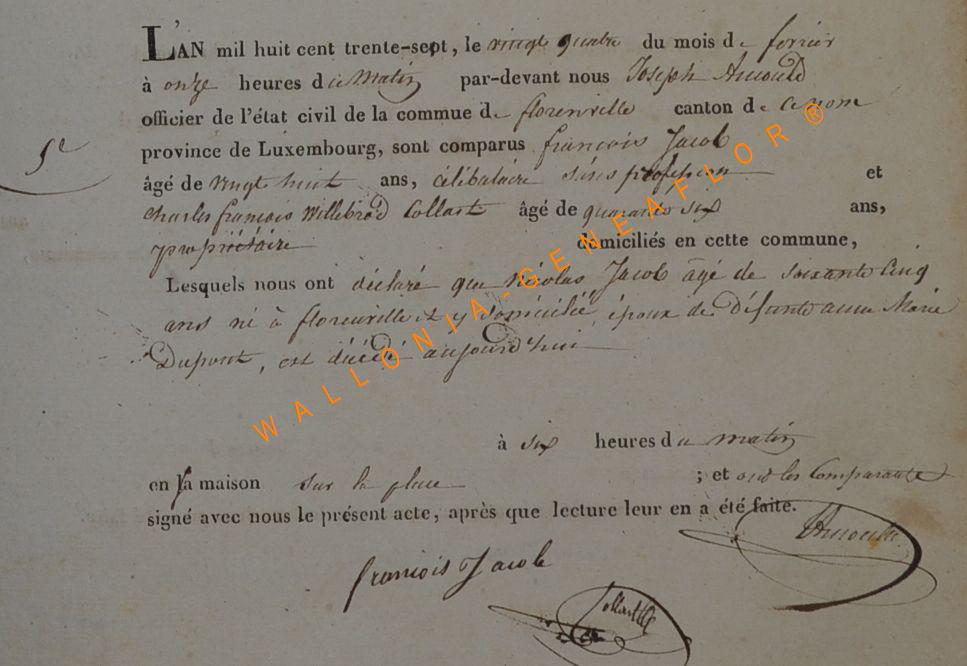 L'AN mil huit cent trente-sept, le vingt quatre du mois de fevrier
à onze heures du Matin par-devant nous Joseph Arnould
officier de l'état civil de la commue de florenville canton de ce nom
province de Luxembourg, sont comparus françois Jacob
5e
âgé de vingt huit ans, célibataire sans profession et
Charles françois Willebrod Collart âgé de quarante six ans,
propriétaire domiciliés en cette commune,
Lesquels nous ont déclaré que Nicolas Jacob âgé de soixante cinq
ans né à florenville et y domicilié, époux de Défunte anne Marie
Dupont, est décédé aujourd'hui
à six heures du matin
en sa maison sur la place ; et ont les Comparants
signé avec nous le présent acte, après que lecture leur en a été faite.
Arnould
françois Jacob
Collart
WALLONIA-GENEAFLOR ®